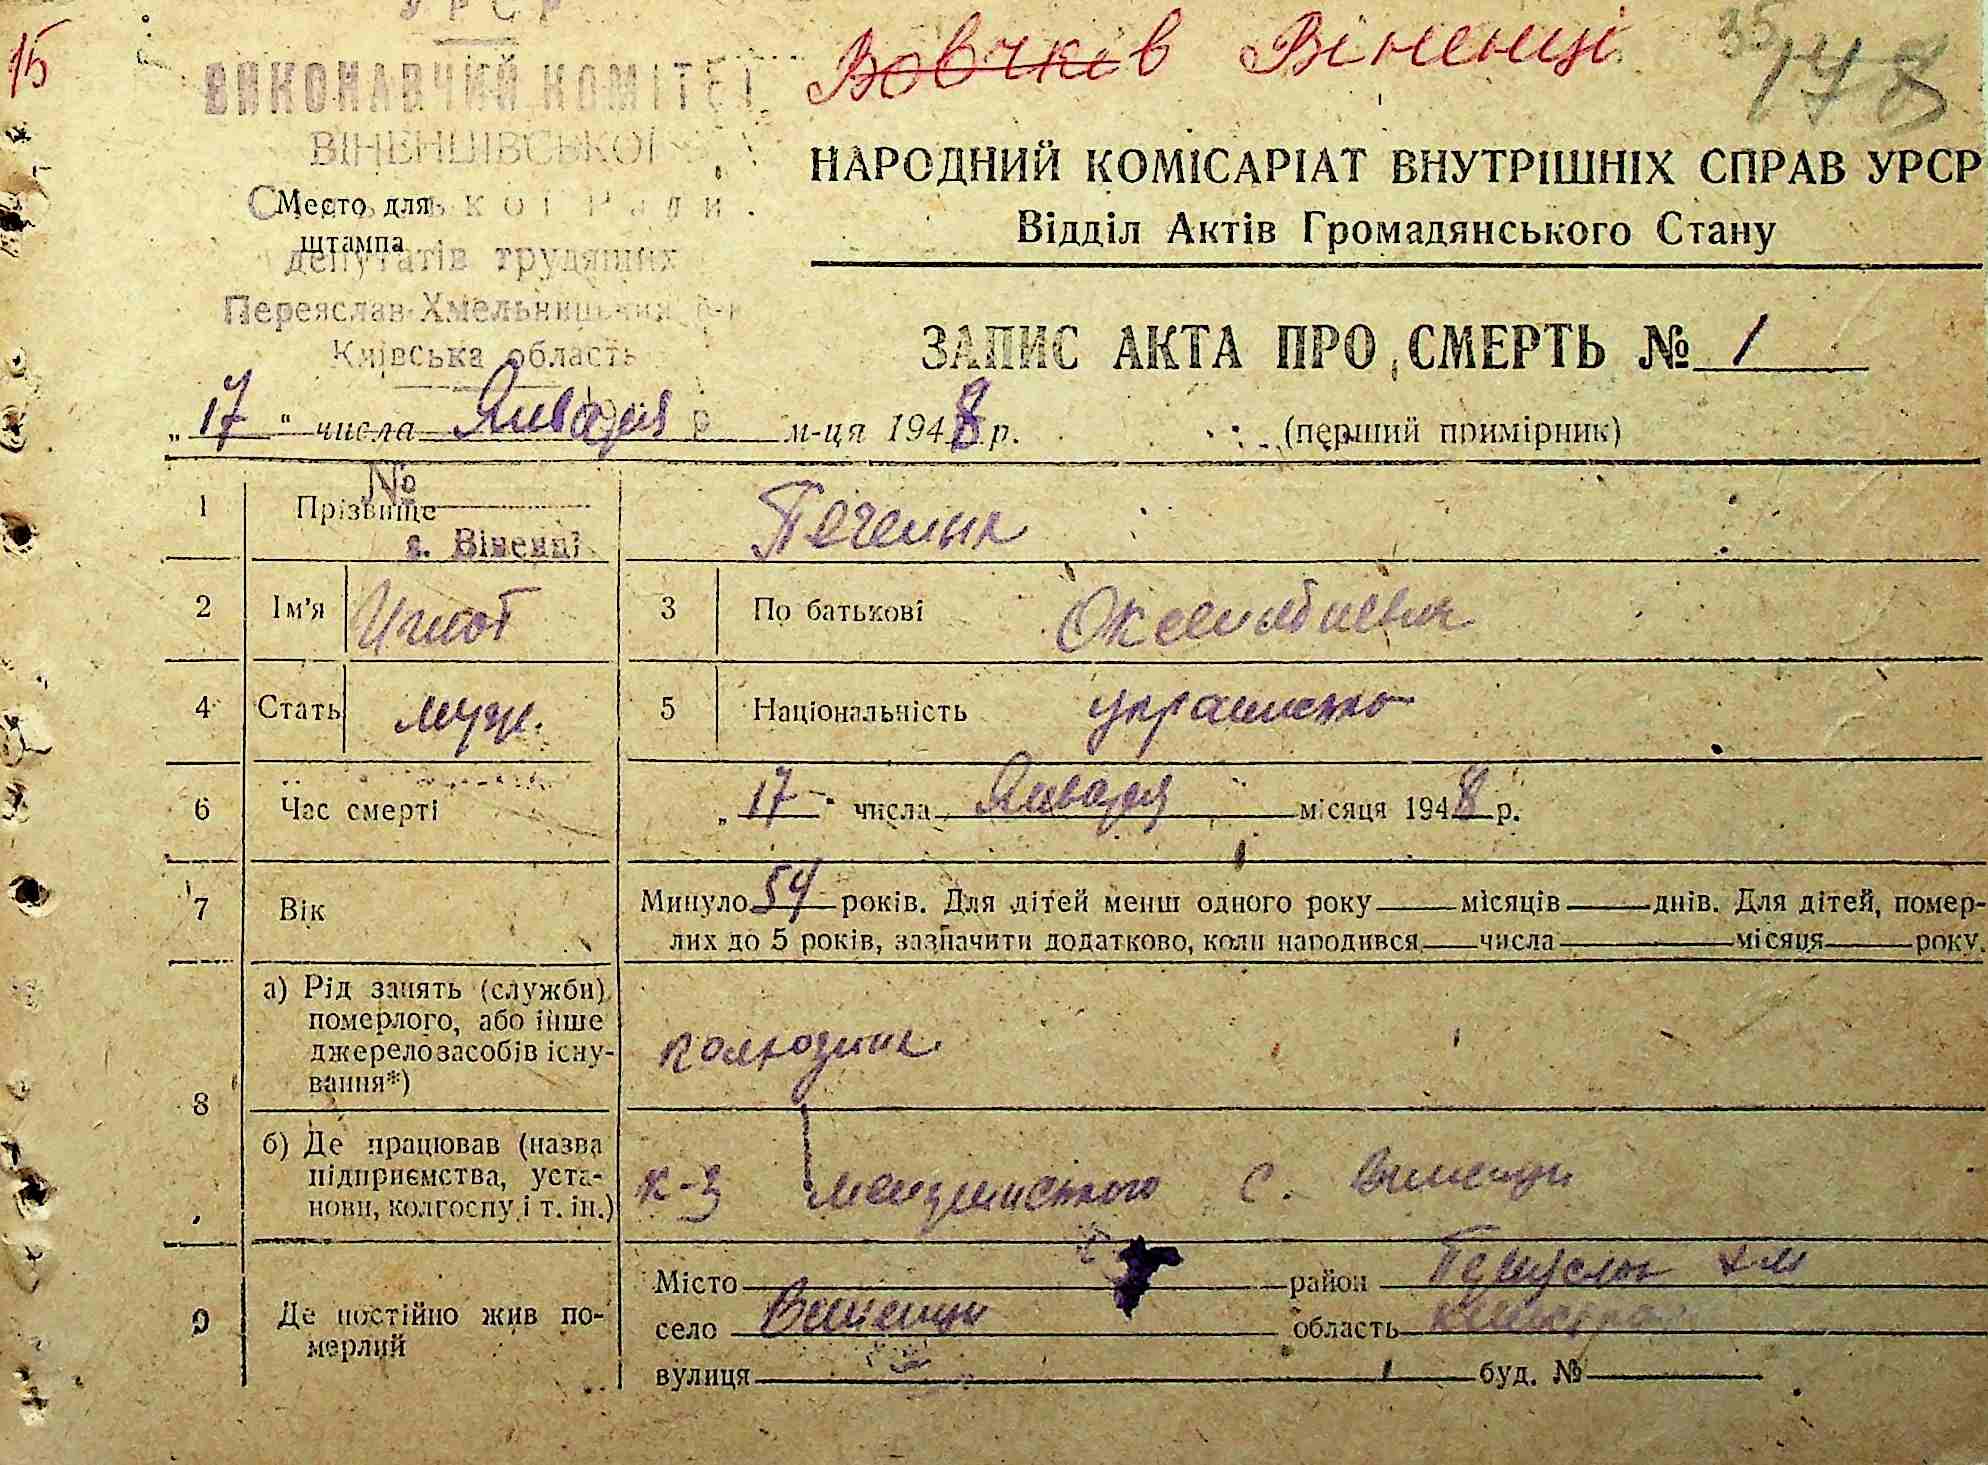 15
УРСР
Вовчків Віненці
35
178
ВИКОНАВЧИЙ КОМІТЕТ
ВІНЕНЦІВСЬКОЇ
Сільської Ради
Место для
штампа
депутатів трудящих
Переяслав-Хмельницький р-н
Київська область
НАРОДНИЙ КОМІСАРІАТ ВНУТРІШНІХ СПРАВ УРСР
Відділ Актів Громадянського Стану
ЗАПИС АКТА ПРО СМЕРТЬ № 1
„17“ числа Января м-ця 1948 р. (перший примірник)
№
с. Віненці
1 Прізвище
2 Ім'я Игнот 3 По батькові
4 Стать муж. 5 Національність
6 Час смерті „17“ числа Января місяця 1948 р.
7 Вік Минуло 54 років. Для дітей менш одного року місяців днів. Для дітей, помер-
лих до 5 років, зазначити додатково, коли народився числа місяця року.
8 а) Рід занять (служби)
померлого, або інше
джерело засобів існу-
вання*)
б) Де працював (назва
підприємства, уста-
нови, колгоспу і т. ін.)
к-з с. Виненци
9 Де постійно жив по-
мерлий
Місто район
село Виненци область
вулиця буд. №